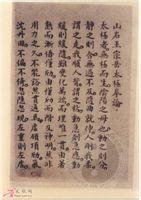 山右王宗岳太極拳論
太極者無極而生陰陽之母也動之則分
靜之則合無過不及隨曲就伸人剛我柔
謂之走我順人背謂之粘動急則急應動
緩則緩隨雖變化萬端而理唯一貫由著
熟而漸悟懂勁由懂勁而階及神明然非
用力之久不能豁然貫通焉虛領頂勁氣
沈丹田不偏不倚忽隱忽現左重則左虛